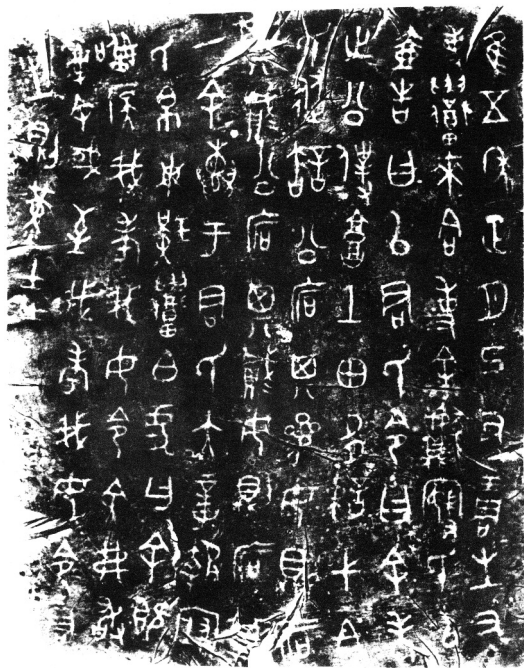 隹五年正月己丑琱生又
事召來合事余獻寢氏以
壺告曰以君氏令曰余老
止公僕庸土田多諫弋白
氏從許公宕其參女則宕
其貳公宕其貳女則宕其
一余惠于君氏大章報寢
氏帛束璜召白虎曰余既
訊厌我考我母令余弗敢
亂余或至我考我母令琱
生則堇圭